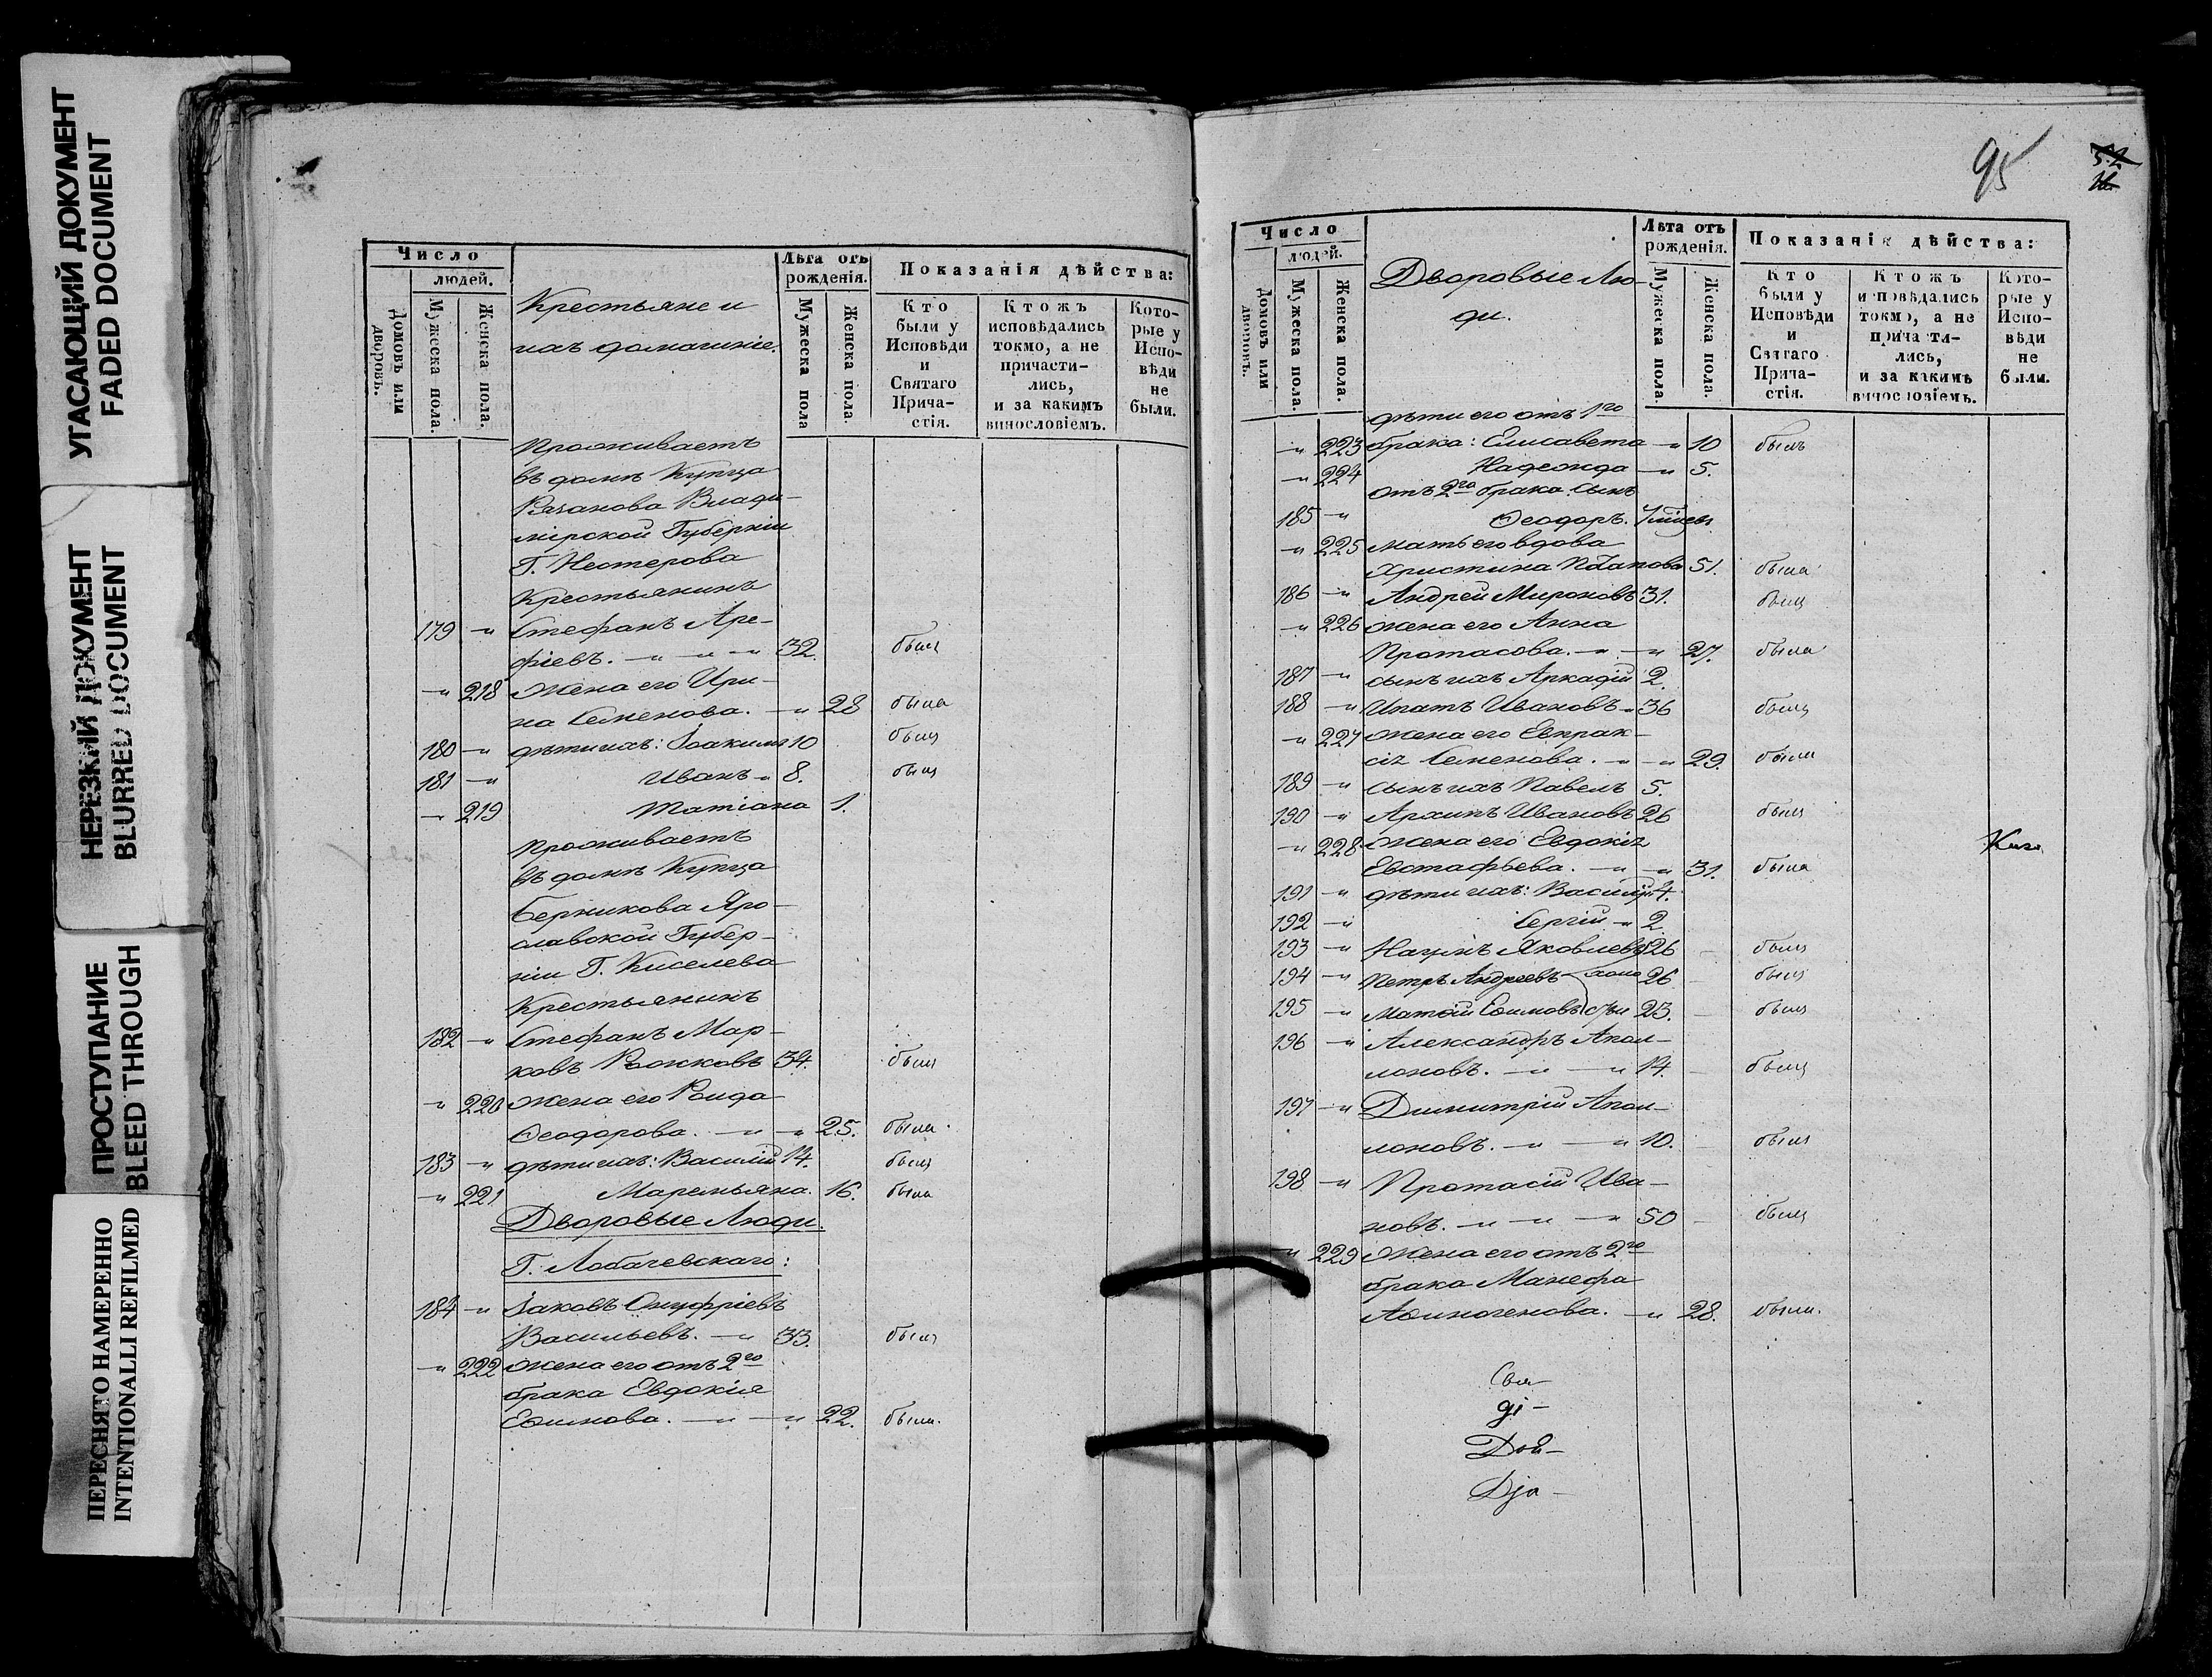 УГАСАЮЩИЙ ДОКУМЕНТ
FADED DOCUMENT
НЕРЕЗКИЙ ДОКУМЕНТ
BLURRED DOCUMENT
ПРОСТУПАНИЕ
BLEED THROUGH
ПЕРЕСНЯТО НАМЕРЕННО
INTENTIONALLI REFILMED
Число
людей.
Домовъ или дворовъ.
Мужеска пола.
Женска пола.
Крестьяне и
ихъ домашніе.
Лѣта отъ
рожденія.
Мужеска пола
Женска пола.
Показанія дѣйства:
Кто
были у
Исповѣди
и
Святаго
Прича-
стія.
Ктожъ
исповѣдались
токмо, а не
причасти-
лись,
и за какимъ
винословіемъ.
Кото-
рые у
Испо-
вѣди
не
были.
Проживаетъ
въ домѣ Купца
Рязанова Влади-
мірской Губерніи
Г. Нестерова
Крестьянинъ
179 -"- Стефанъ Аре-
фіевъ. -"- -"- 32. былъ
-"- 218 жена его Ири-
на Семенова. -"- 28 была
180 -"- дѣти ихъ: Іоакимъ 10 былъ
181 -"- Иванъ -"- 8. былъ
-"- 219 Татіана 1.
Проживаетъ
въ домѣ Купца
Берникова Яро-
славской Губер-
ніи Г. Киселева
Крестьянинъ
182 -"- Стефанъ Мар-
ковъ Рожковъ 34. былъ
-"- 220 жена его Раида
Ѳеодорова. -"- -"- 25. была
183 -"- дѣти ихъ: Василій 14. былъ
-"- 221 Маремьяна. 16. была
Дворовые Люди.
Г. Лобачевскаго:
184 -"- Іаковъ Онуфріевъ
Васильевъ. -"- 33. былъ
-"- 222 жена его отъ 2го
брака Евдокія
Еѳимова. -"- -"- 22. была.
95
Число
людей.
Домовъ или дворовъ.
Мужеска пола.
Женска пола.
Дворовые Лю-
ди.
Лѣта отъ
рожденія.
Мужеска пола.
Женска пола.
Показанія дѣйства:
Кто
были у
Исповѣди
и
Святаго
Прича-
стія.
Ктожъ
исповѣдались
токмо, а не
причасти-
лись,
и за какимъ
винословіемъ.
Кото-
рые у
Испо-
вѣди
не
были.
дѣти его отъ 1го
-"- 223 брака: Елисавета -"- 10 былъ
-"- 224 Надежда -"- 5.
отъ 2го брака сынъ
185 -"- Ѳеодоръ.
-"- 225 мать его вдова
Христина Потапова 51. была
186 -"- Андрей Мироновъ 31. былъ
-"- 226 жена его Анна
Протасова. -"- -"- 27. была
187 -"- сынъ ихъ Аркадій 2.
188 -"- Ипатъ Ивановъ -"- 36 былъ
-"- 227 жена его Евпрак-
сія Семенова. -"- -"- 29. была
189 -"- сынъ ихъ Павелъ 5.
190 -"- Архипъ Ивановъ 26 былъ
-"- 228 жена его Евдокія
Евстафьева. -"- -"- 31. была
191 -"- дѣти ихъ: Василій 4.
192 -"- Сергій -"- 2
193 -"- Наумъ Яковлевъ 26 былъ
194 -"- Петръ Андреевъ 26 былъ
195 -"- Матѳій Еѳимовъ 23. былъ
196 -"- Александръ Апол-
лоновъ. -"- -"- 14. былъ
197 -"- Димитрій Апол-
лоновъ. -"- -"- 10. былъ
198 -"- Протасій Ива-
новъ. -"- -"- -"- 50 былъ
-"- 229 жена его отъ 2го
брака Манефа
Аѳиногенова. -"- 28. была.
Свя-
ді-
Дой-
Dja-